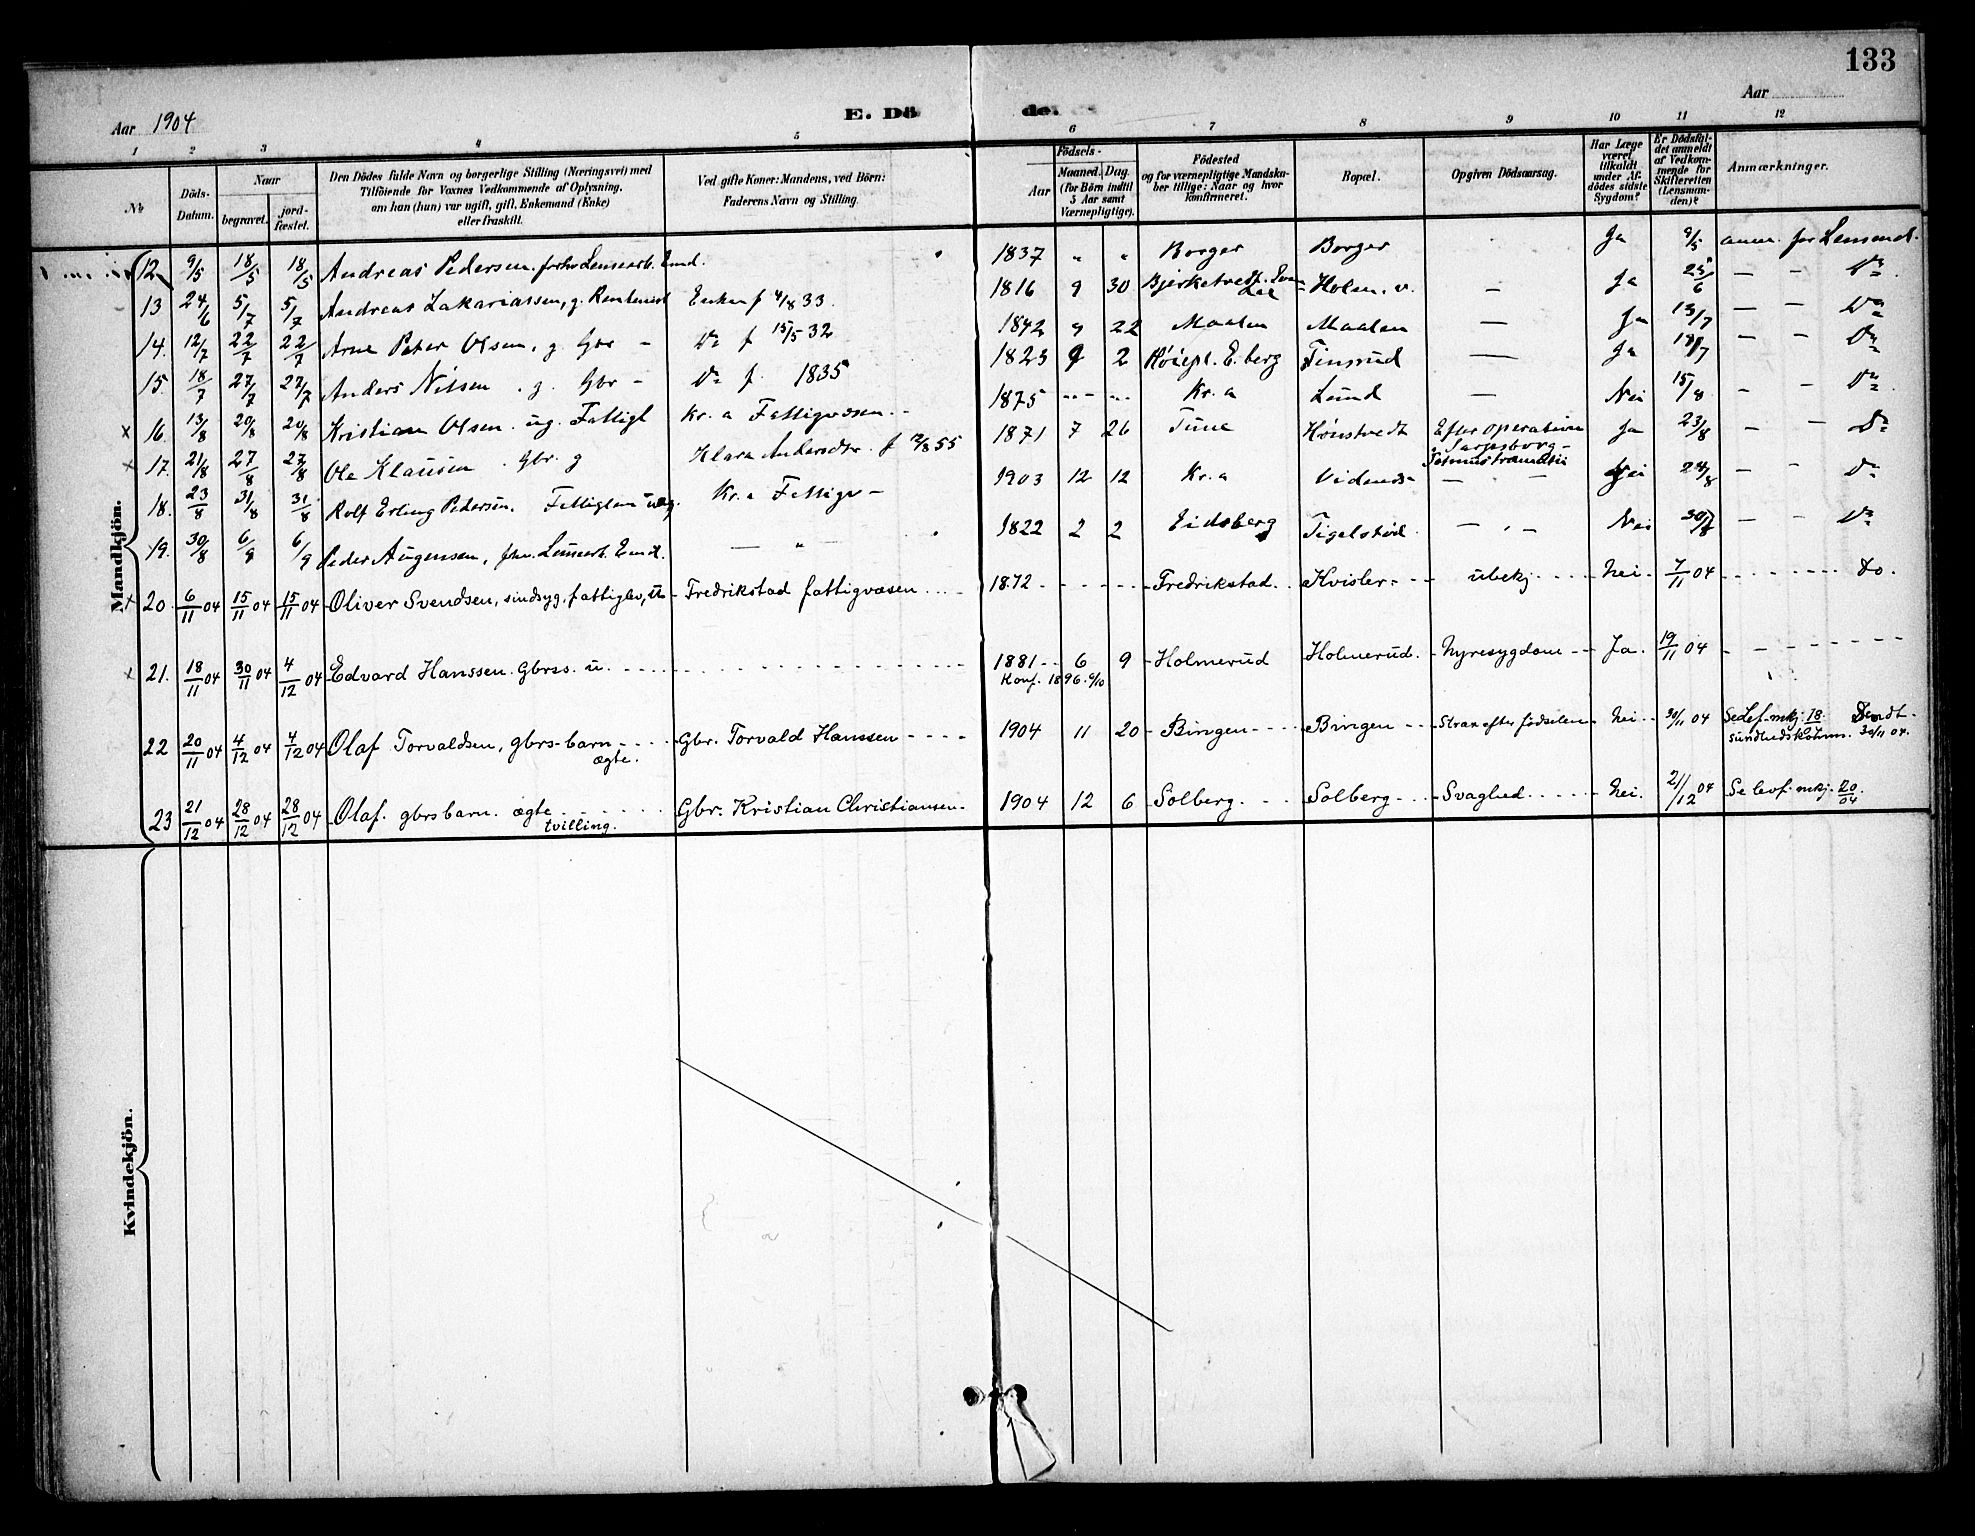 133
Aar 1904
E. Döde.
Aar
1 2 3 4 5 6 7 8 9 10 11 12
No
Döds-Datum.
Naar
begravet.
jord-fæstet.
Den Dödes fulde Navn og borgerlige Stilling (Næringsvei) med
Tilföiende for Voxnes Vedkommende af Oplysning,
om han (hun) var ugift, gift, Enkemand (Enke)
eller fraskilt.
Ved gifte Koner: Mandens, ved Börn:
Faderens Navn og Stilling.
Födsels-
Aar
Maaned.
Dag.
(for Börn indtil
5 Aar samt
Værnepligtige).
Födested
og for værnepligtige Mandska-
ber tillige: Naar og hvor
konfirmeret.
Bopæl.
Opgiven Dödsaarsag.
Har Læge
været
tilkaldt
under Af-
dödes sidste
Sygdom?
Er Dödsfal-
det anmeldt
af Vedkom-
mende for
Skifteretten
(Lensman-
den)?
Anmærkninger.
Mandkjön.
12 9/5 18/5 18/5 Andreas Pedersen. 1837 " " Borger Borger Ja 9/5 anm. for Lensmd.
13 24/6 5/7 5/7 Andreas Zakariassen, g. Enken f 4/8 33. 1816 9 30 Holen. v. — Ja 25/6 — — Do
14. 12/7 22/7 22/7 Arne Peter Olsen, g. Gbr — Do f 15/5 32 1842 9 22 Maalen Maalen — Ja 13/7 — — Do
15. 18/7 27/7 27/7 Anders Nilsen . g. Gbr — Do f. 1835 1823 9 2 Høiepl. E.berg Finsrud — Ja 18/7 — — Do
x 16. 13/8 20/8 20/8 Kristian Olsen. ug. Fattigl Kr. a Fattigvæsen. 1875 Kr. a Lund — Nei 15/8 — — Do
x 17. 21/8 27/8 27/8 Ole Klausen . Gbr. g Klara Andersdtr. f 12/8 55 1871 7 26 Tune Hønstvedt Efter operation
Sarpsborg— Ja 23/8 — — Do
18. 23/8 31/8 31/8 Rolf Erling Pedersen. Kr. a Fattigv — 1903 12 12 Kr. a — — Nei 24/8 — — Do
19. 30/8 6/9 6/9 Peder Augensen, — " — 1822 2 2 Eidsberg Tigelstød — Nei — — Do
x 20. 6/11 04 15/11 04 15/11 04 Oliver Svendsen, sindsyg. fattiglem, u — Fredrikstad fattigvæsen 1872 Fredrikstad. Kvisler ubekj. Nei. 7/11 04 do.
x 21. 18/11 04 30/11 04 4/12 04 Edvard Hanssen. gbrss. u. 1881 6 9 Holmerud Holmerud. Nyresygdom Ja. 19/11 04
Konf. 1896.
22 20/11 04 4/12 04 4/12 04 Olaf Torvaldsen, gbrs-barn, Gbr. Torvald Hanssen 1904 11 20 Bingen Bingen Strax efter fødselen Nei 30/11 04 Se Lef. mkj. 18. Sendt
ægte. sundhedskomm. 30/11 04.
23 21/12 04 28/12 04 28/12 04 Olaf. gbrsbarn. ægte Gbr. Kristian Christiansen. 1904 12 6 Solberg. Solberg Svaghed Nei. 21/12 04 Se levf. mkj. 20/04.
tvilling.
Kvindekjön.